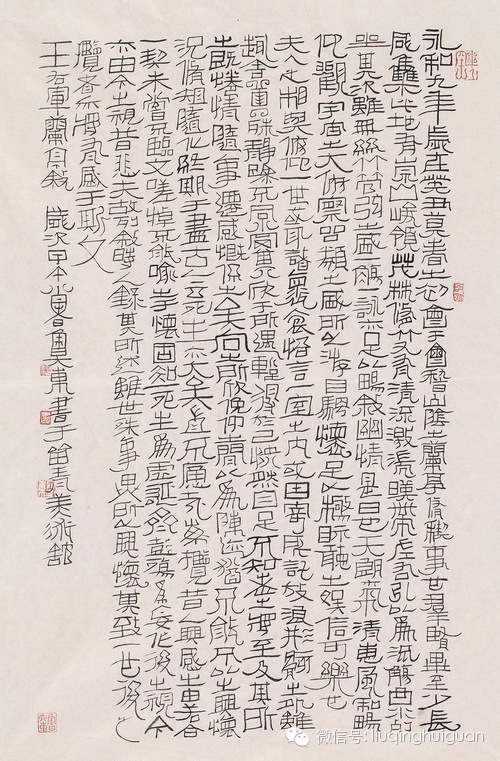 永和九年歲在癸丑莫春之初會于會稽山陰之蘭亭脩禊事也羣賢畢至少長
咸集此地有崇山峻領茂林脩竹又有清流激湍暎帶左右引以為流觴曲水列
坐其次雖無絲竹管弦之盛一觴一詠亦足以暢敘幽情是日也天朗氣清惠風和暢
仰觀宇宙之大俯察品類之盛所以游目騁懷足以極視聽之娛信可樂也
夫人之相與俯仰一世或取諸懷抱悟言一室之內或因寄所託放浪形骸之外雖
趣舍萬殊靜躁不同當其欣于所遇蹔得於己怏然自足不知老之將至及其所
之既惓情隨事遷感慨係之矣向之所欣俛仰之間以為陳迹猶不能不以之興懷
況脩短隨化終期于盡古人云死生亦大矣豈不痛哉每攬昔人興感之由若合
一契未嘗不臨文嗟悼不能喻之於懷固知一死生為虛誕齊彭殤為妄作後之視今
亦由今之視昔悲夫故列敘時人錄其所述雖世殊事異所以興懷其致一也後之
攬者亦將有感于斯文
王右軍蘭亭敘 歲次甲午 東書于留青美術館
微信号: liuqinghuiguan